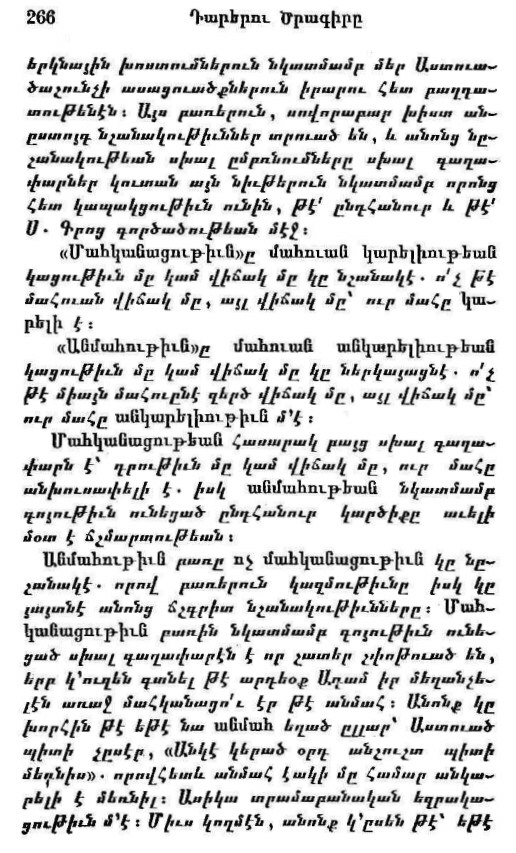 266 Դարերու Ծրագիրը
երկնային խոստումներուն նկատմամբ մեր Աստուա-
ծաշունչի ասացուածքներուն իրարու հետ բաղդա-
տութենէն։ Այս բառերուն, սովորաբար խիստ ան-
ըստոյգ նշանակութիւններ տրուած են, և անոնց նը-
շանակութեան սխալ ըմբռնումները սխալ գաղա-
փարներ կուտան այն նիւթերուն նկատմամբ որոնց
հետ կապակցութիւն ունին, թէ՛ ընդհանուր և թէ՛
Ս. Գրոց գործածութեան մէջ։
«Մահկանացութիւն»ը մահուան կարելիութեան
կացութիւն մը կամ վիճակ մը կը նշանակէ. ո՛չ թէ
մահուան վիճակ մը, այլ վիճակ մը՝ ուր մահը կա-
րելի է։
«Անմահութիւն»ը մահուան անկարելիութեան
կացութիւն մը կամ վիճակ մը կը ներկայացնէ. ո՛չ
թէ միայն մահուընէ զերծ վիճակ մը, այլ վիճակ մը՝
ուր մահը անկարելիութիւն մ՚է։
Մահկանացութեան հասարակ բայց սխալ գաղա-
փարն է՝ դրութիւն մը կամ վիճակ մը, ուր մահը
անխուսափելի է. իսկ անմահութեան նկատմամբ
գոյութիւն ունեցած ընդհանուր կարծիքը աւելի
մօտ է ճշմարտութեան։
Անմահութիւն բառը ոչ մահկանացութիւն կը նը-
շանակէ. որով բառերուն կազմութիւնը իսկ կը
յայտնէ անոնց ճշգրիտ նշանակութիւնները։ Մահ-
կանացութիւն բառին նկատմամբ գոյութիւն ունե-
ցած սխալ գաղափարէն է որ շատեր շփոթուած են,
երբ կ՚ուզեն գտնել թէ արդեօք Ադամ իր մեղանչե-
լէն առաջ մահկանացո՛ւ էր թէ անմահ։ Անոնք կը
խորհին թէ եթէ նա անմահ եղած ըլլար՝ Աստուած
պիտի չըսէր, «Անկէ կերած օրդ անշուշտ պիտի
մեռնիս». որովհետև անմահ էակի մը համար անկա-
րելի է մեռնիլ։ Ասիկա տրամաբանական եզրակա-
ցութիւն մ՚է։ Միւս կողմէն, անոնք կ՚ըսեն թէ՝ եթէ